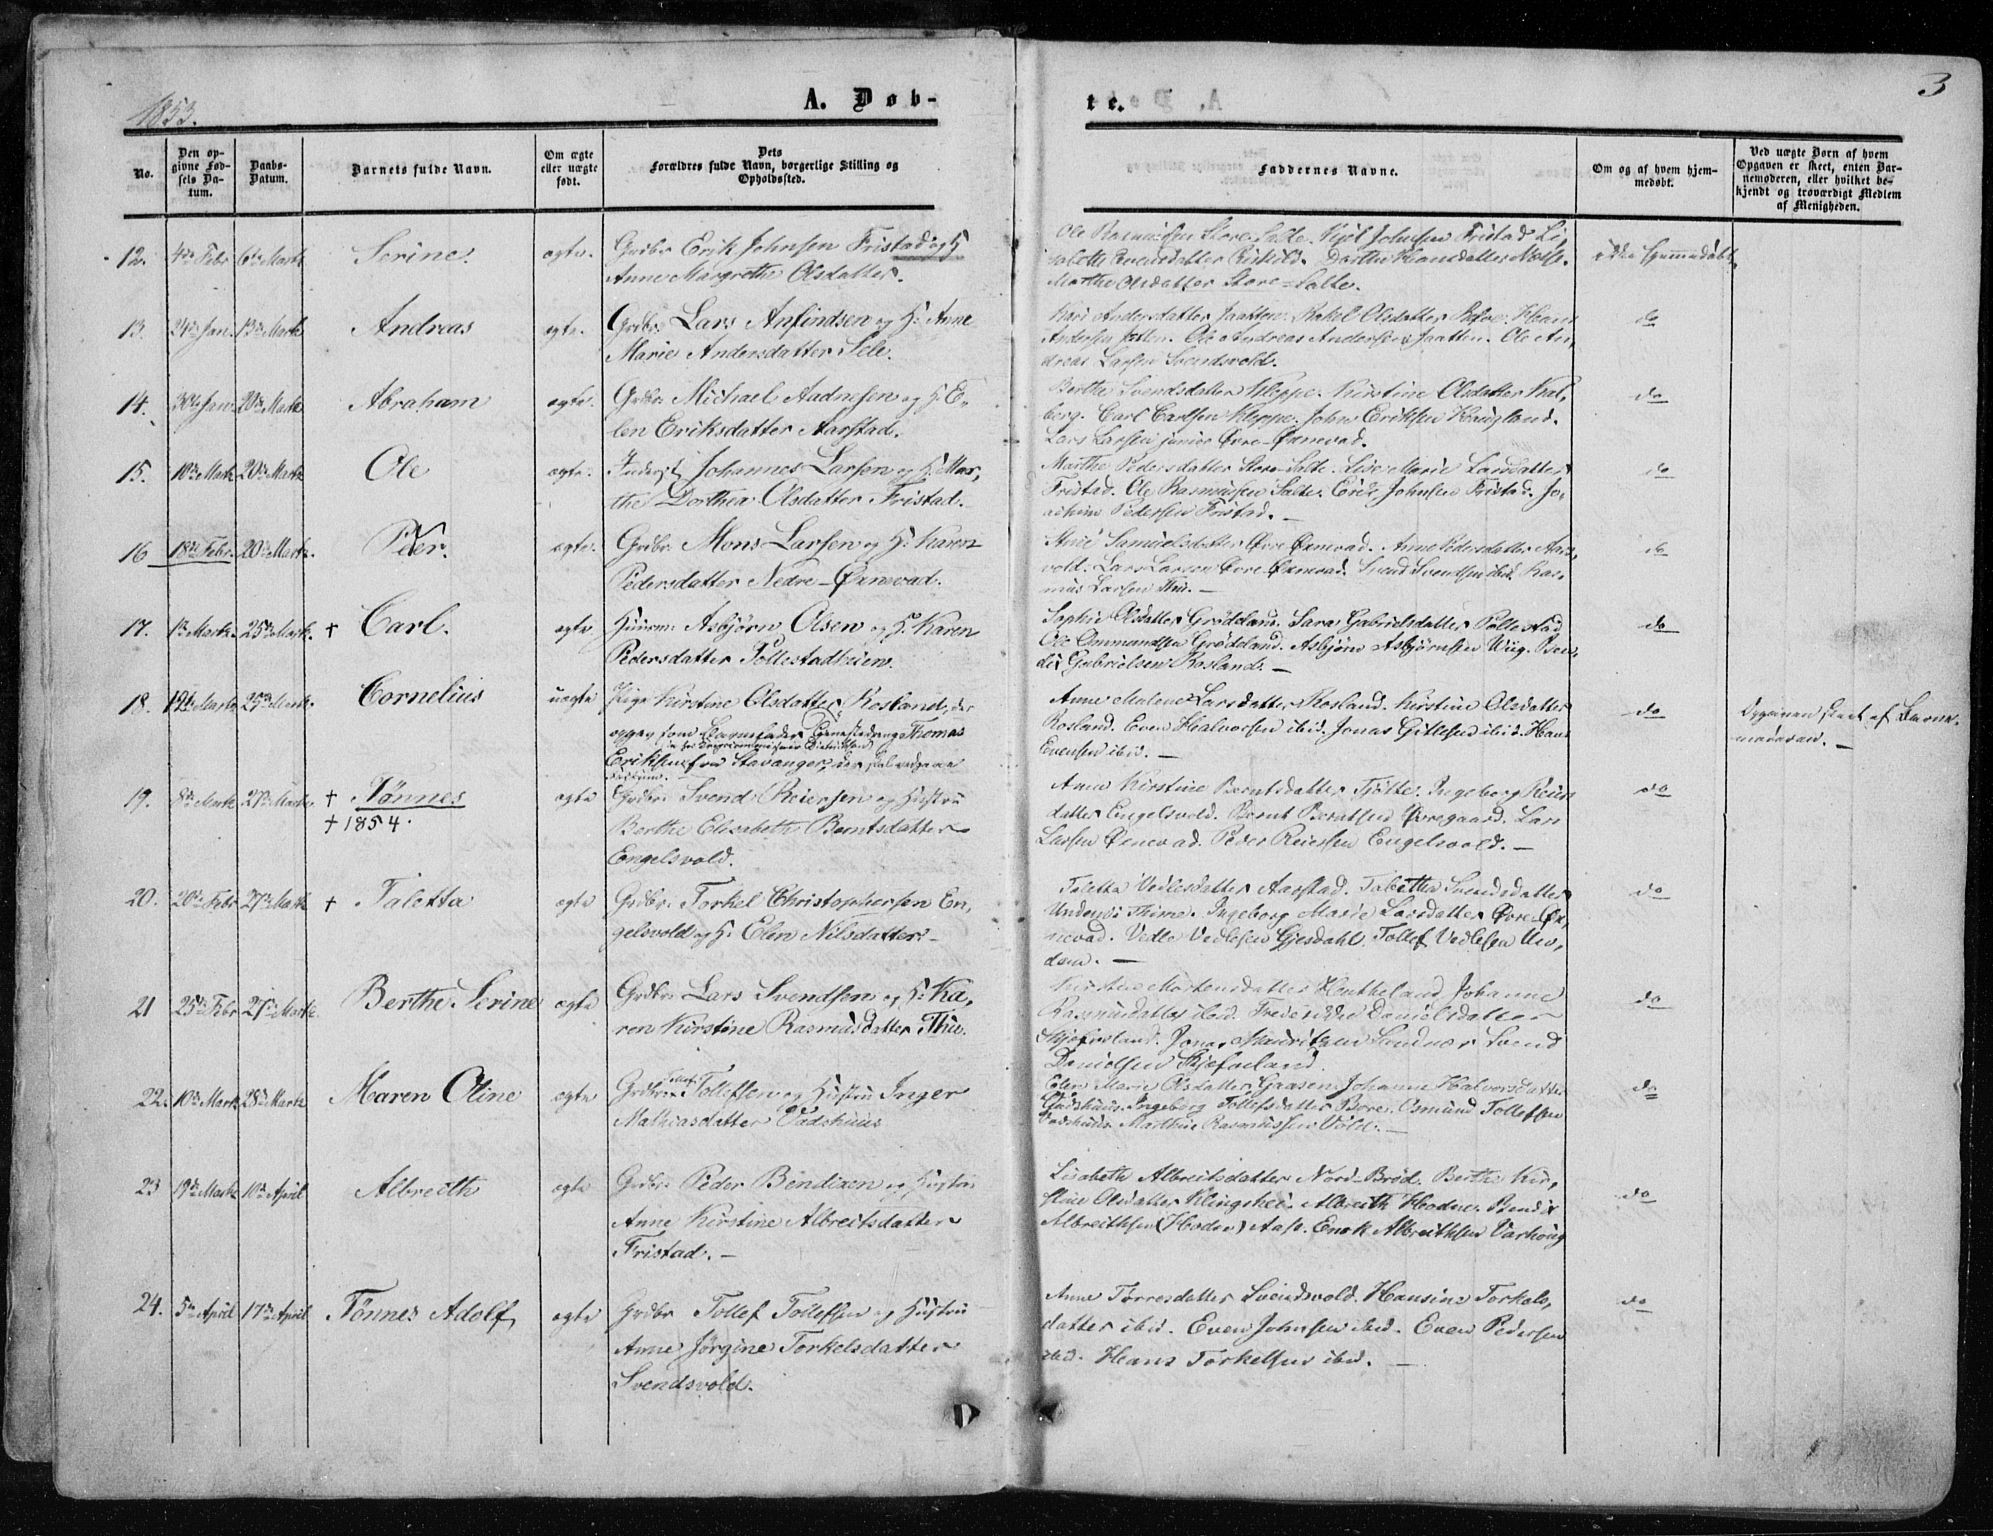 1853.
A. Døb-
te.
3
No.
Den op-
givne Fød-
sels Da-
tum.
Daabs-
Datum.
Barnets fulde Navn.
Om ægte
eller uægte
født.
Dets
Forældres fulde Navn, borgerlige Stilling og
Opholdssted.
Faddernes Navne.
Om og af hvem hjem-
medøbt.
Ved uægte Børn af hvem
Opgaven er skeet, enten Bar-
nemoderen, eller hvilket be-
kjendt og troværdigt Medlem
af Menigheden.
12. 4de Febr 6te Marts Serine. ægte. Grdbr Erik Johnsen Fristad og H
Anne Margrethe Olsdatter.
Ole Rasmussen Store Salte. Kjel Johnsen Fristad Li,
Marthe Olsdatter Store-Salte.
ikke hjemmedøbt.
13. 24de Jan. 13de Marts Andreas ægte. Grdbr: Lars Anfindsen og H: Anne
Marie Andersdatter Sele.
Kari Andersdatter Jaatten. Rakel Olsdatter Bore. Hans
Andersen Jatten. Ole Andreas Andersen Jaatten. Ole An,
dreas Larsen Svendsvold.
do
14. 30te Jan. 20de Marts Abraham ægte. Grdbr: Michael Aadnesen og H E-
len Eriksdatter Aarstad.
Berthe Svendsdatter Kleppe. Kirstine Olsdatter Kal,
berg. Carl Carlsen Kleppe. John Eriksen Haugland.
Lars Larsen junior Øvre-Øxnevad.
do
15. 10de Marts 20de Marts Ole ægte. Inderst Johannes Larsen og H. Mar,
the Dorthea Olsdatter Fristad.
Marthe Pedersdatter Store-Salte. Lise Marie Larsdatter
Fristad. Ole Rasmussen Salte. Johnsen Fristad. Jo-
achim Pedersen Fristad. —
do
16 18de Febr. 20de Marts. Peder. ægte. Grdbr: Mons Larsen og H: Karen
Pedersdatter Nedre-Øxnevad.
Samuelsdatter Øvre Øxnevad. Anne Pedersdatter
vold. Lars Larsen Øvre-Øxnevad. Svend Svendsen ibid. Ras,
mus Larsen Thu. —
do
17. 1te Marts. 25de Marts. † Carl. ægte Huusm: Asbjørn Olsen og H. Karen
Pedersdatter
Sophie Olsdatter Grødeland. Sara Gabrielsdatter Pollestad
Ole Ommundsen Grødeland. Asbjørn Asbjørnsen Wiig. Ben,
dix Gabrielsen Rosland. —
do
18. 12te Marts 25de Marts. Cornelius uægte Pige Kirstine Olsdatter Rosland, der
opgav som Barnefader Thomas
Eriksen fra Stavanger,
Anne Malene Larsdatter Rosland. Kirstine Olsdatter
Rosland. Even Halvorsen ibid. Jonas Gitlesen ibid. Hans
Evensen ibid. —
do
Opgaven skeet af Barne-
moderen. —
19. 8de Marts 27de Marts † Tønnes
† 1854.
ægte Grdbr: Svend Reiersen og Hustru
Berthe Elisabeth Berntsdatter
Engelsvold.
Anne Kirstine Berntsdatter Tjøtte. Ingeborg Reiers
datter Engelsvold. Bernt Berntsen Øvregaard. Lars
Larsen Øxnevad. Peder Reiersen Engelsvold. —
do
20. 20de Febr 27de Marts † Taletta ægte Grdbr: Torkel Christophersen En,
gelsvold og H: Elen Nilsdatter. —
Taletta Vedlesdatter Aarstad. Tabitha Svendsdatter
Undem Thime. Ingeborg Marie Larsdatter Øvre-Øx,
nevad. Vedle Vedlesen Gjesdahl. Tollef Vedlesen Un,
dem. —
do
21 25de Febr 27de Marts Berthe Serine ægte Grdbr: Lars Svendsen og H: Ka,
ren Kirstine Rasmusdatter Thu.
Mortensdatter Johanne
Rasmusdatter ibid. Fredrikke Danielsdatter
Skjæveland. Jonas Mauritsen Sandnæs Svend
Danielsen Skjæveland.
do
22. 10de Marts 28de Marts Maren Oline ægte Grdbr: Tollefsen og Hustru Inger
Mathiasdatter Vadshuus
Elen Marie Olsdatter Gaasen. Johanne Halvorsdatter
Vadshuus. Ingeborg Tollefsdatter Bore. Osmund Tollefsen
Vadshuus. Marthin Rasmussen Vold. —
do
23 19de Marts 10de April Albreith ægte Grdbr: Peder Bendixen og Hustru
Anne Kirstine Albreitsdatter
Fristad. —
Lisabeth Albreitsdatter Nord-Brød. Berthe Kir,
stine Olsdatter Klingshei. Albreith Hodne. Bendix
Albreithsen (Hodne) Aase. Enok Albreithsen Varhoug
do
24. 5te April 17de April Tønnes Adolf ægte Grdbr Tollef Tollefsen og Hustru
Anne Jørgine Torkelsdatter
Svendsvold.
Anne Torresdatter Svendsvold. Hansine Torkels,
datter ibid. Even Johnsen ibid. Even Pedersen
ibid. Hans Torkelsen ibid. —
do